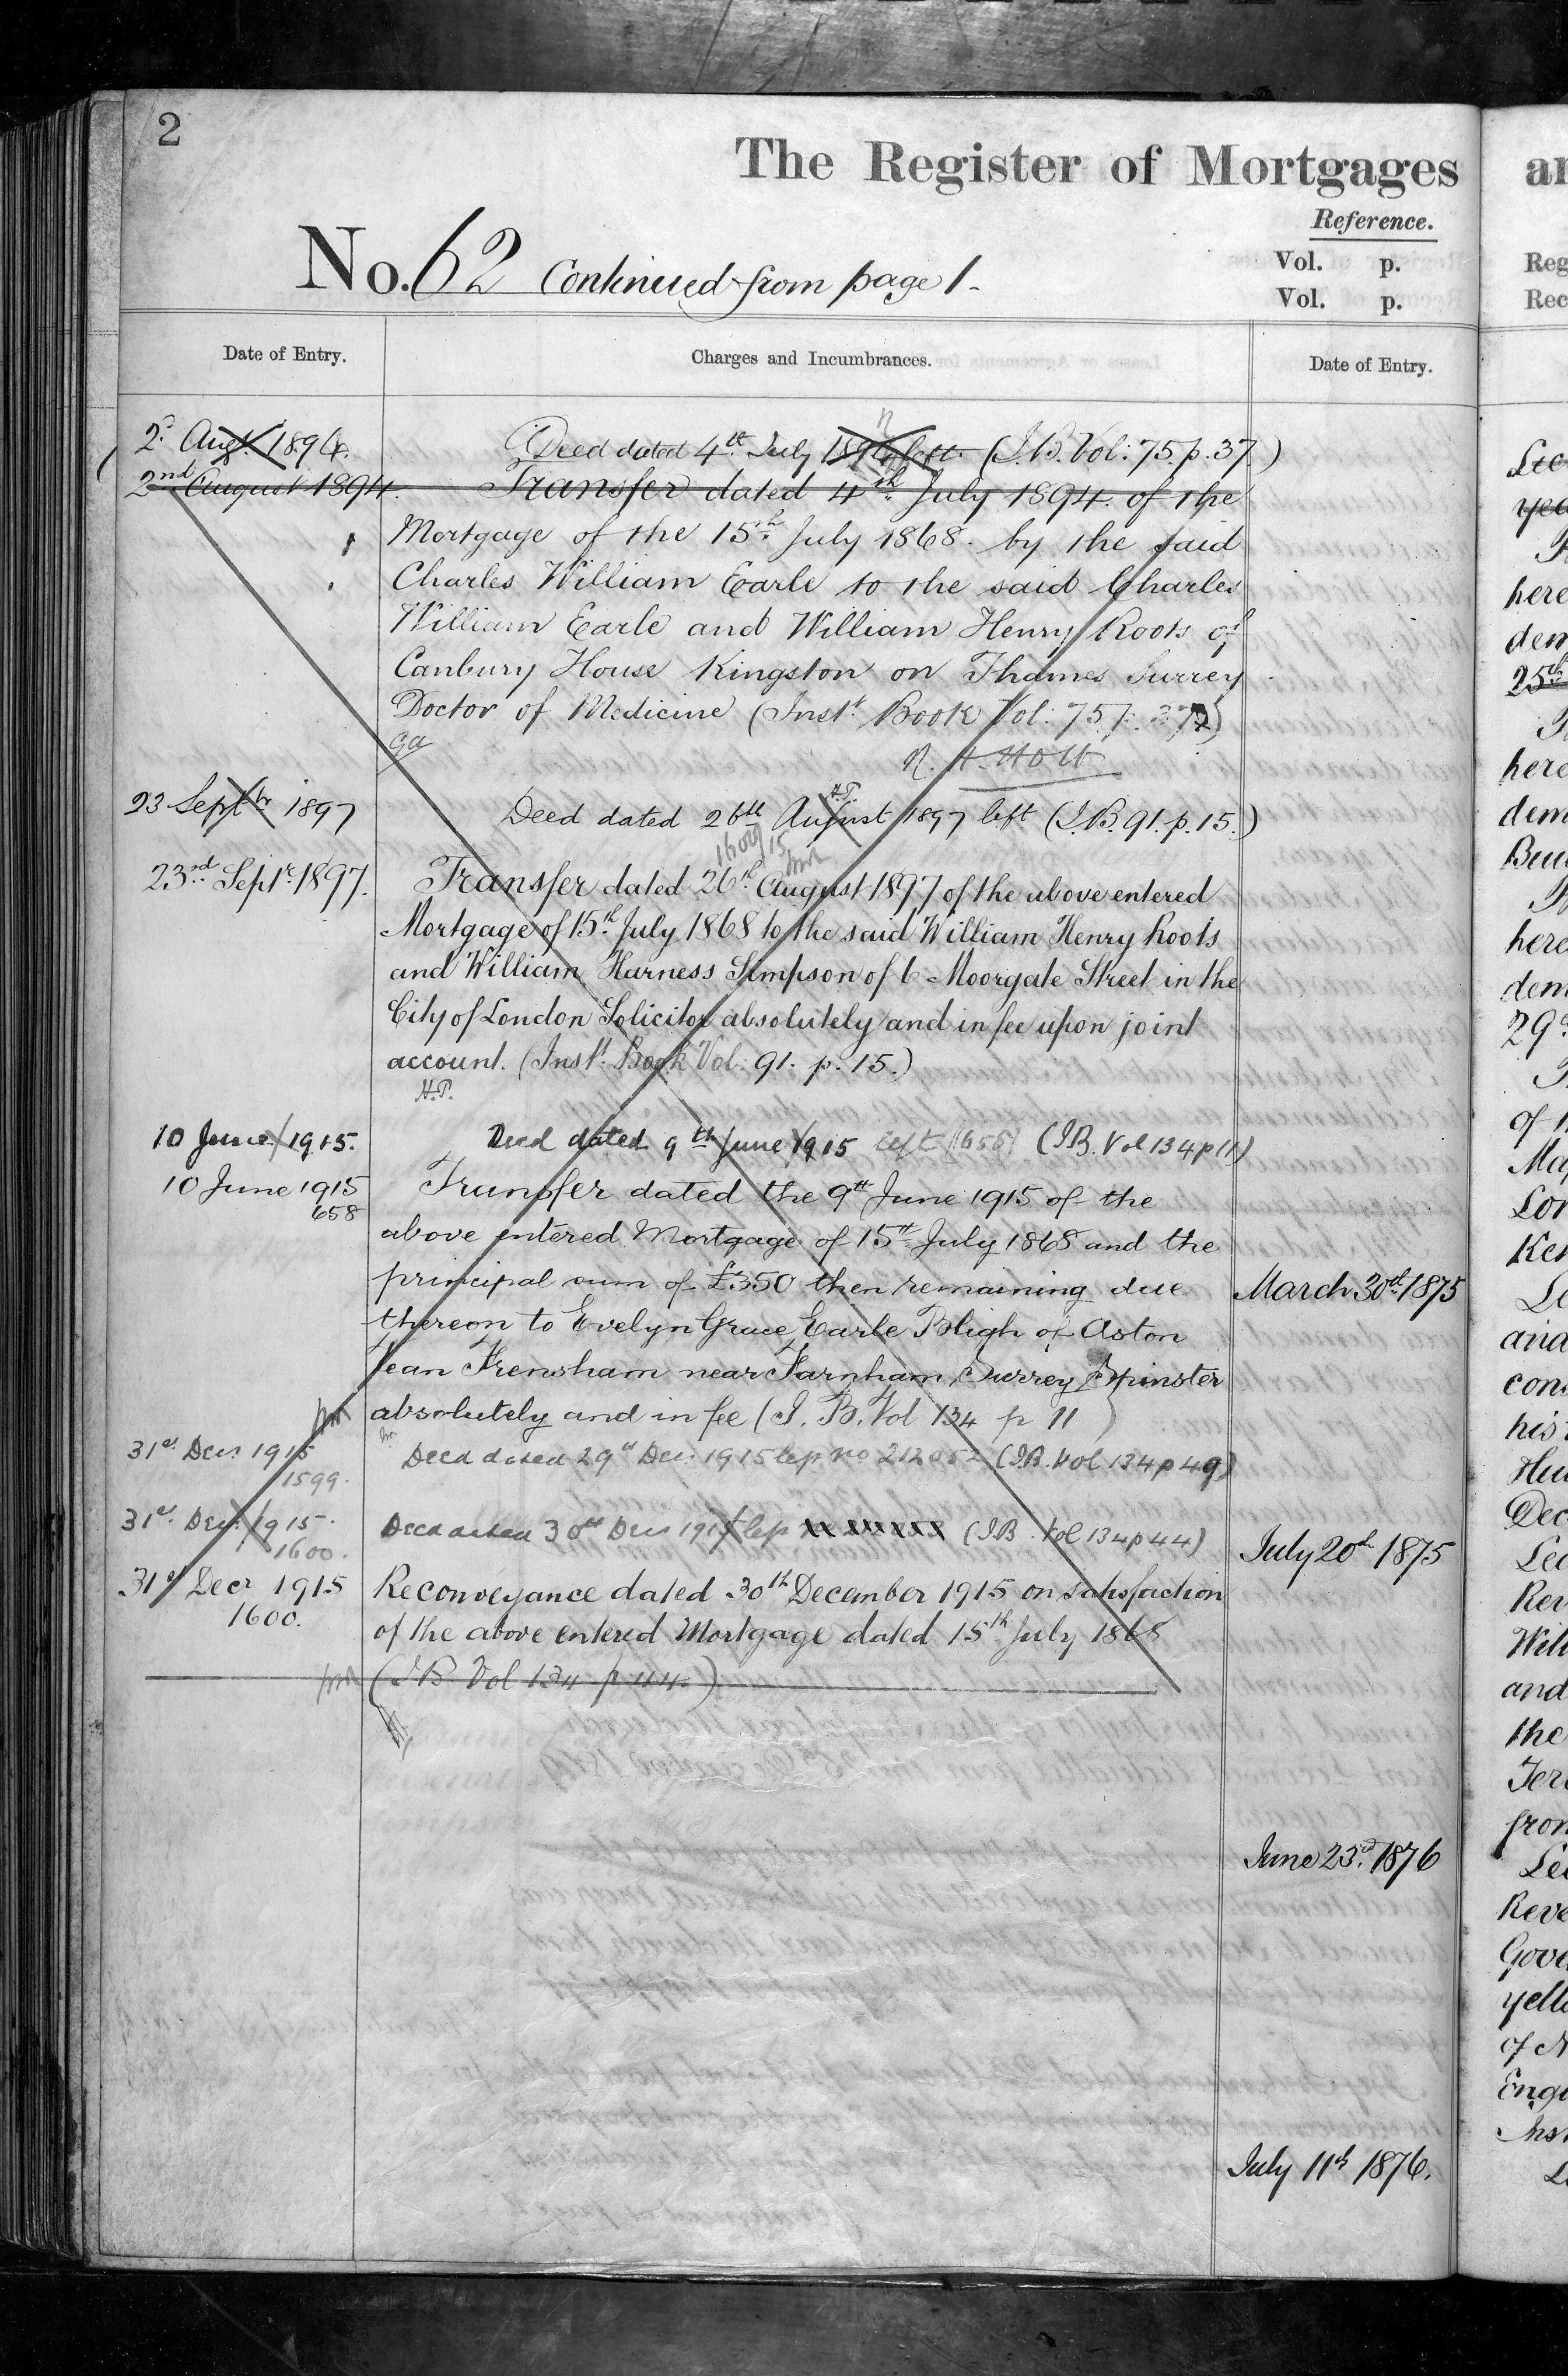 2
The Register of Mortgages
Reference.
No. 62 Continued from page 1.
Vol. p.
Vol. p.
Date of Entry.
Charges and Incumbrances.
Date of Entry.
2d Augt. 1894.
Deed dated 4th July 1894 left (I.B. Vol: 75. p. 37)
2nd August 1894.
Transfer dated 4th July 1894 of the
Mortgage of the 15th July 1868 by the said
Charles William Earle to the said Charles
William Earle and William Henry Roots of
Canbury House Kingston on Thames Surrey
Doctor of Medicine (Inst. Book Vol: 75 p. 37)
23 Septbr 1897
H.P.
Deed dated 26th August 1897 left (I.B. 91. p. 15.)
1600/15
23rd Septr. 1897.
Transfer dated 26th August 1897 of the above entered
Mortgage of 15th July 1868 to the said William Henry Roots
and William Harness Simpson of 6 Moorgate Street in the
City of London Solicitor absolutely and in fee upon joint
account. (Inst. Book Vol: 91. p. 15.)
H.P.
10 June 1915.
Deed dated 9th June 1915 left (658) (I.B. Vol 134 p 11)
10 June 1915
658
Transfer dated the 9th June 1915 of the
above entered Mortgage of 15th July 1868 and the
principal sum of £350 then remaining due
thereon to Evelyn Grace Earle Bligh of Aston
Tean Frensham near Farnham Surrey Spinster
absolutely and in fee (I. B. Vol 134 p 11)
31st Decr 1915
1599.
Deed dated 29th Decr 1915 lep no 212052 (I.B. Vol 134 p 49)
31st Decr 1915.
1600.
Deed dated 30th Decr 1915 lep (I.B. Vol 134 p 44)
31st Decr 1915
1600.
Reconveyance dated 30th December 1915 on satisfaction
of the above entered Mortgage dated 15th July 1868
(I B Vol 134 p 44.)
March 30th 1875
July 20th 1875
June 23rd 1876
July 11th 1876.
an
Reg
Rec
yea
here
dem
25th
here
dem
here
dem
29
of
Lon
Ken
and
con
his
Dec
Rev
Will
and
the
from
Reve
Gove
yello
of N
Engi
Inst